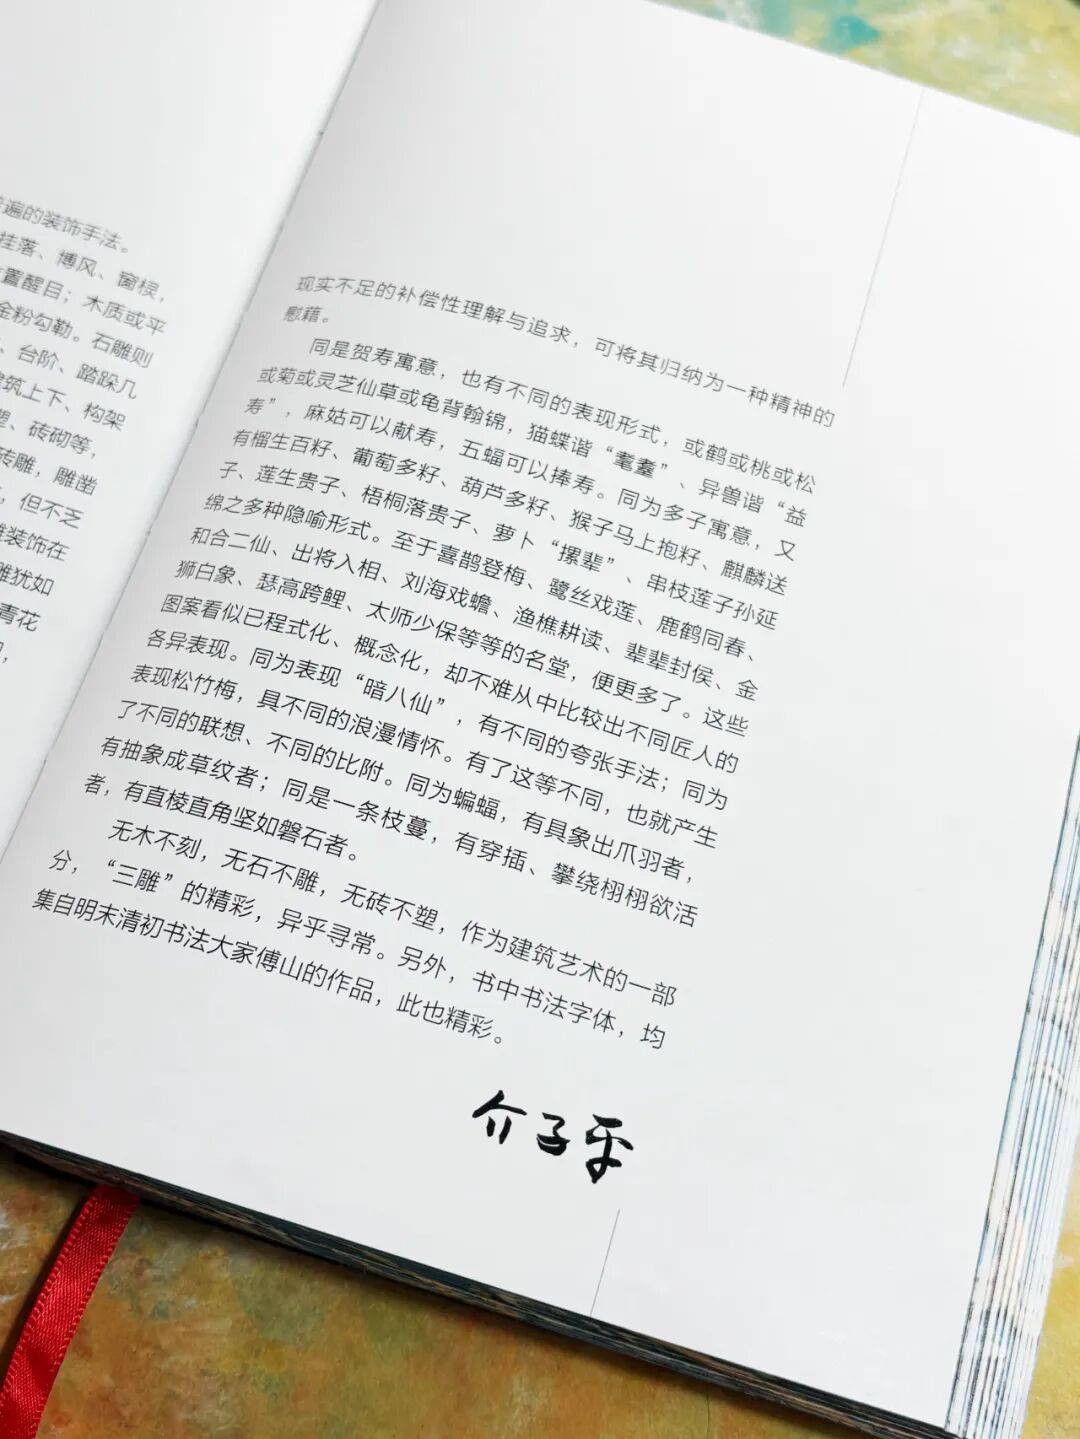 遍的装饰手法。
挂落、博风、窗棂，
置醒目；木质或平
金粉勾勒。石雕则
、台阶、踏跺几
筑上下、构架
、砖砌等，
砖雕，雕凿
，但不乏
雕装饰在
雕犹如
青花
现实不足的补偿性理解与追求，可将其归纳为一种精神的
慰藉。
同是贺寿寓意，也有不同的表现形式，或鹤或桃或松
或菊或灵芝仙草或龟背翰锦，猫蝶谐“耄耋”、异兽谐“益
寿”，麻姑可以献寿，五蝠可以捧寿。同为多子寓意，又
有榴生百籽、葡萄多籽、葫芦多籽、猴子马上抱籽、麒麟送
子、莲生贵子、梧桐落贵子、萝卜“摞辈”、串枝莲子孙延
绵之多种隐喻形式。至于喜鹊登梅、鹭丝戏莲、鹿鹤同春、
和合二仙、出将入相、刘海戏蟾、渔樵耕读、辈辈封侯、金
狮白象、瑟高跨鲤、太师少保等等的名堂，便更多了。这些
图案看似已程式化、概念化，却不难从中比较出不同匠人的
各异表现。同为表现“暗八仙”，有不同的夸张手法；同为
表现松竹梅，具不同的浪漫情怀。有了这等不同，也就产生
了不同的联想、不同的比附。同为蝙蝠，有具象出爪羽者，
有抽象成草纹者；同是一条枝蔓，有穿插、攀绕栩栩欲活
者，有直棱直角坚如磐石者。
无木不刻，无石不雕，无砖不塑，作为建筑艺术的一部
分，“三雕”的精彩，异乎寻常。另外，书中书法字体，均
集自明末清初书法大家傅山的作品，此也精彩。
介子平